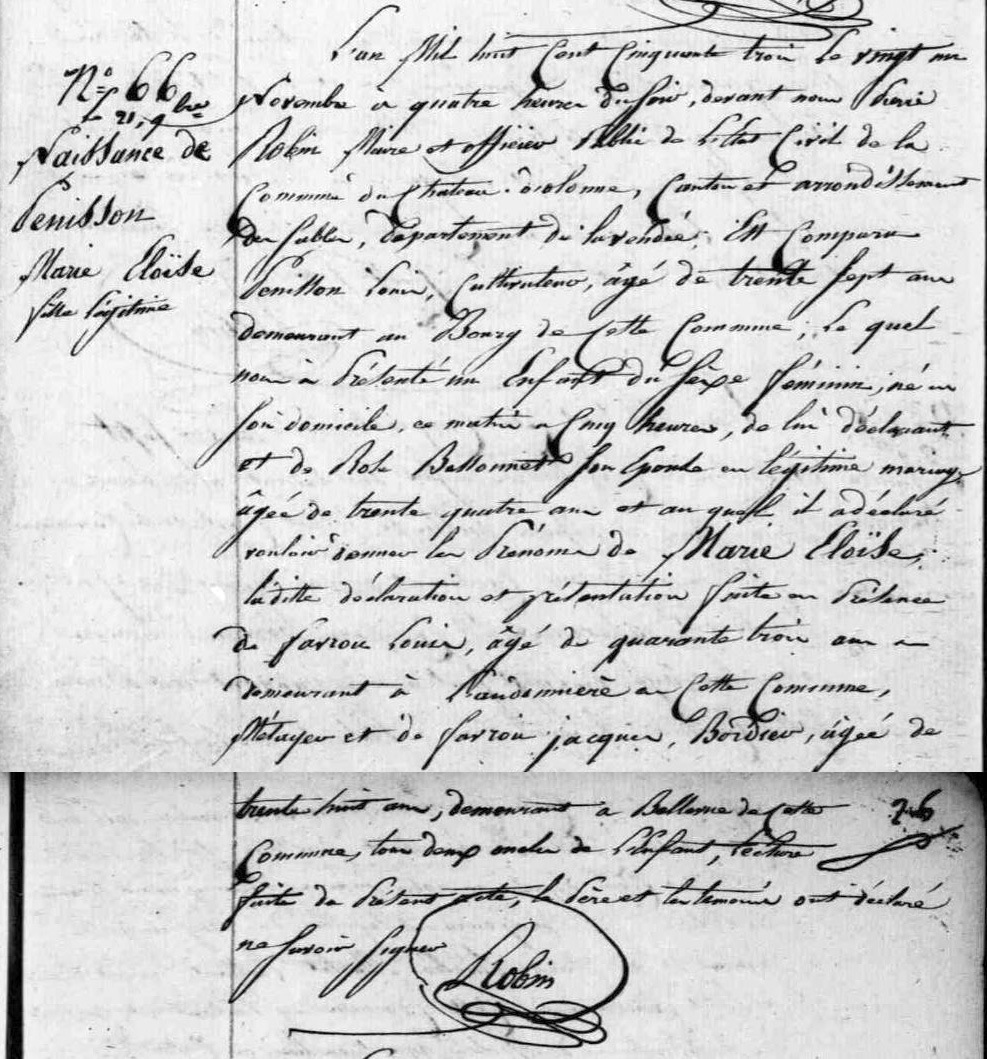 N° 66
Le 21, 9bre
Naissance de
Penisson
Marie Eloïse
fille légitime
L'an Mil huit Cent Cinquante trois le vingt un
Novembre a quatre heures du soir, devant nous Pierre
Robin Maire et officier Public de L'Etat Civil de la
Commune du Chateau d'olonne, Canton et arrondissement
des Sables, département de la vendée, Est Comparu
Penisson Louis, Cultivateur, âgé de trente sept ans
demeurant au Bourg de Cette Commune; Le quel
nous a Présenté un Enfant du Sexe féminin, né en
son domicile, ce matin a Cinq heures, de lui déclarant
et de Rose Bessonnet son Epouse en légitime mariage
âgée de trente quatre ans et au quel il a déclaré
vouloir donner les Prénoms de Marie Eloïse,
la ditte déclaration et présentation faite en Présence
de Louis, âgé de quarante trois ans
demeurant à en Cette Commune,
Métayer et de jacques, Bordier, âgée de
trente huit ans, demeurant a Bellevue de Cette 26
Commune, tous deux oncles de L'Enfant, Lecture
faite du Présent acte, le Père et les témoins ont déclaré
ne savoir signer
Robin